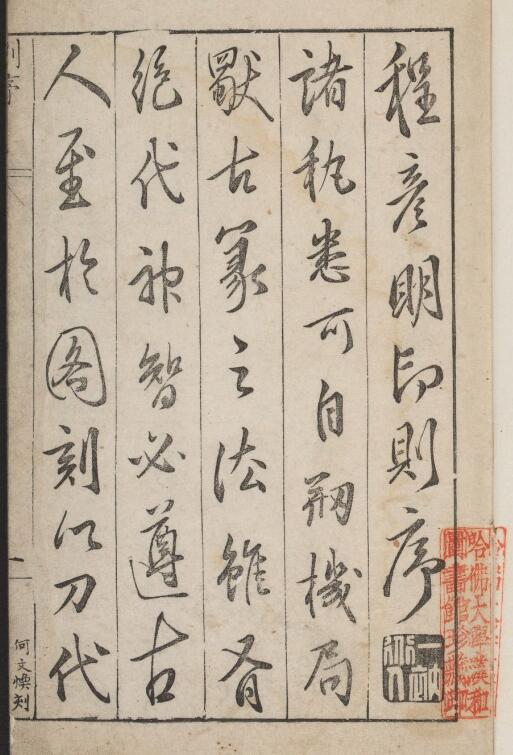 程彥明印則序
諸秇悉可自剏機局
獸古篆之法雖有
絕代神智必遵古
人至於圖刻以刀代
則序
何文煥刻
哈佛大學漢和圖書館珍藏印